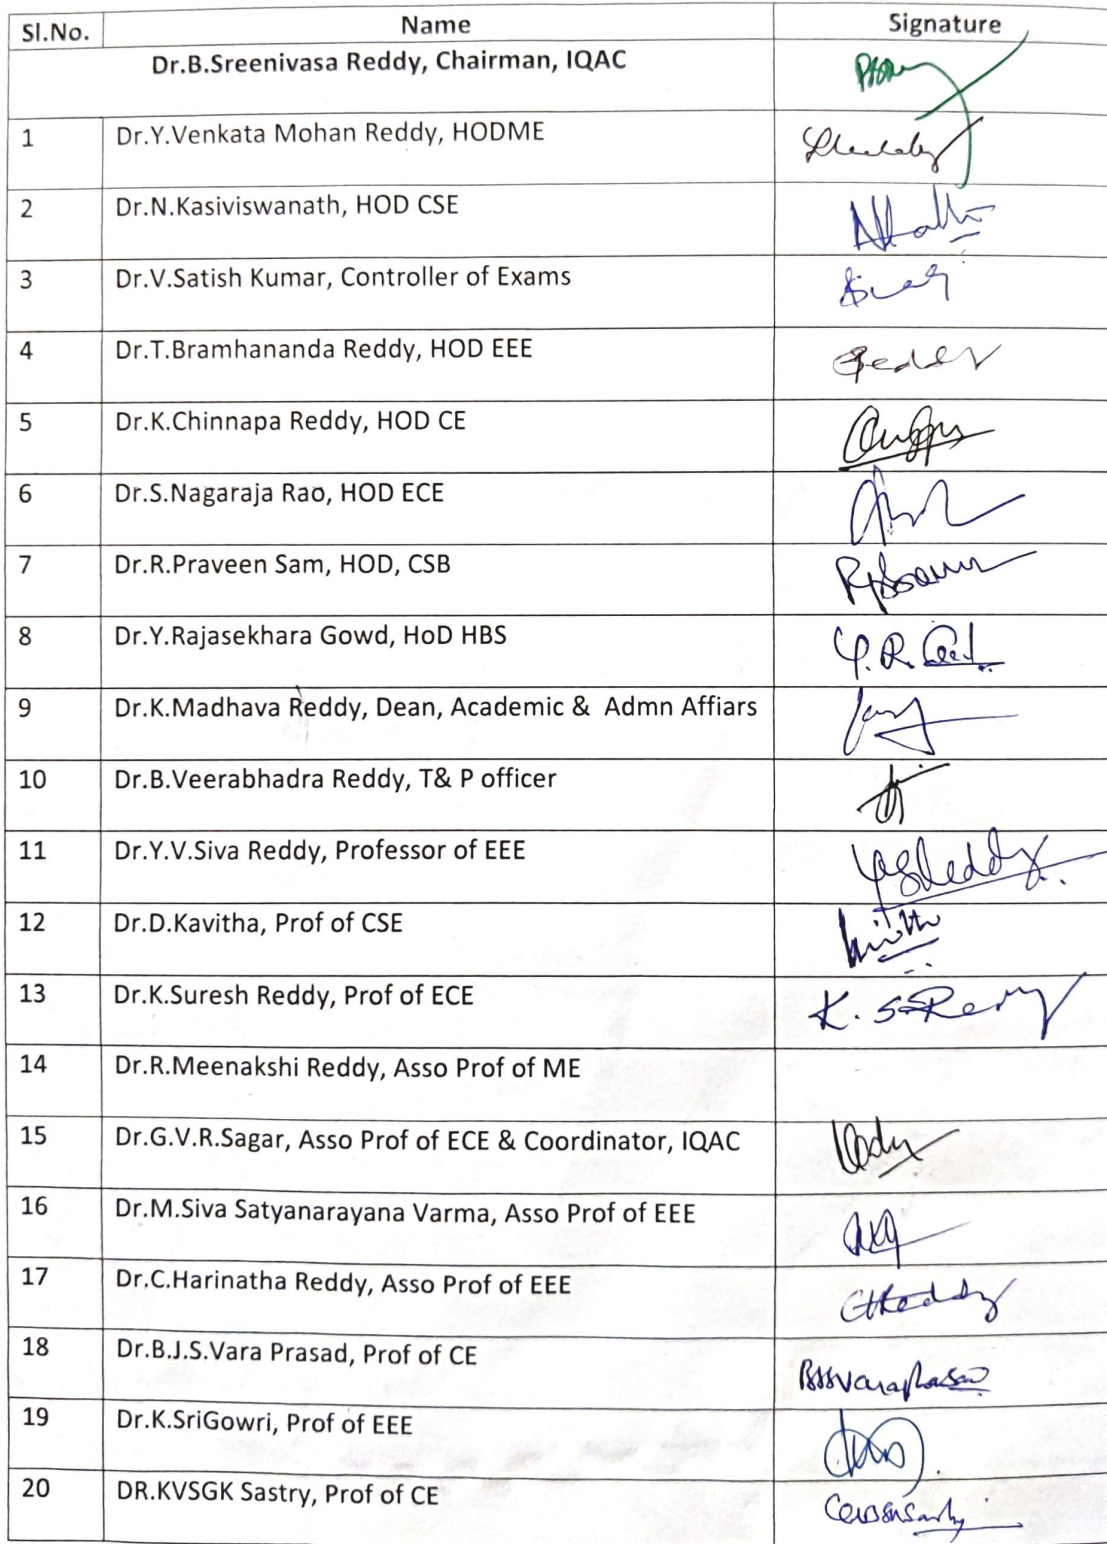 Sl.No. Name Signature
Dr.B.Sreenivasa Reddy, Chairman, IQAC
1 Dr.Y.Venkata Mohan Reddy, HODME
2 Dr.N.Kasiviswanath, HOD CSE
3 Dr.V.Satish Kumar, Controller of Exams
4 Dr.T.Bramhananda Reddy, HOD EEE
5 Dr.K.Chinnapa Reddy, HOD CE
6 Dr.S.Nagaraja Rao, HOD ECE
7 Dr.R.Praveen Sam, HOD, CSB
8 Dr.Y.Rajasekhara Gowd, HoD HBS
9 Dr.K.Madhava Reddy, Dean, Academic & Admn Affiars
10 Dr.B.Veerabhadra Reddy, T& P officer
11 Dr.Y.V.Siva Reddy, Professor of EEE
12 Dr.D.Kavitha, Prof of CSE
13 Dr.K.Suresh Reddy, Prof of ECE K. S. Reddy
14 Dr.R.Meenakshi Reddy, Asso Prof of ME
15 Dr.G.V.R.Sagar, Asso Prof of ECE & Coordinator, IQAC
16 Dr.M.Siva Satyanarayana Varma, Asso Prof of EEE
17 Dr.C.Harinatha Reddy, Asso Prof of EEE
18 Dr.B.J.S.Vara Prasad, Prof of CE
19 Dr.K.SriGowri, Prof of EEE
20 DR.KVSGK Sastry, Prof of CE